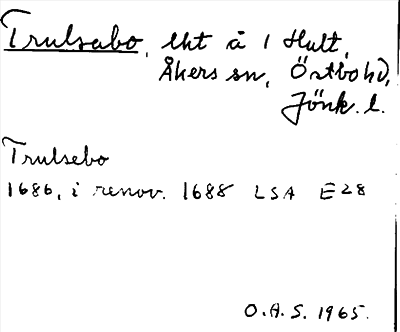 Trulsabo, lht å 1 Hult,
Åkers sn, Östbo hd,
Jönk. l.
Trulsebo
1686, i renov. 1688 LSA E28
O.A.S. 1965.